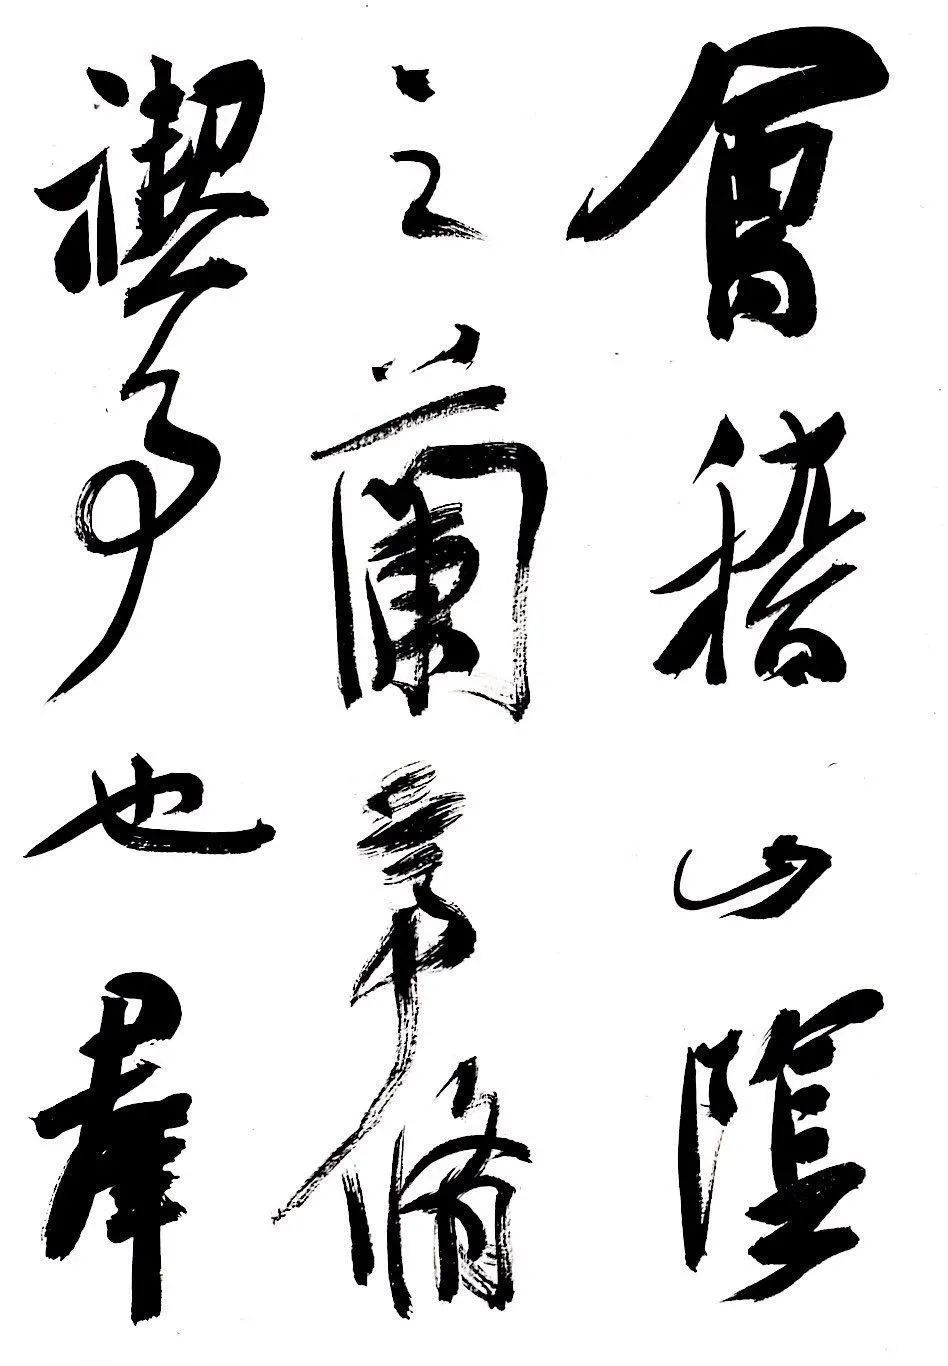 會稽山陰
之蘭亭脩
禊事也羣